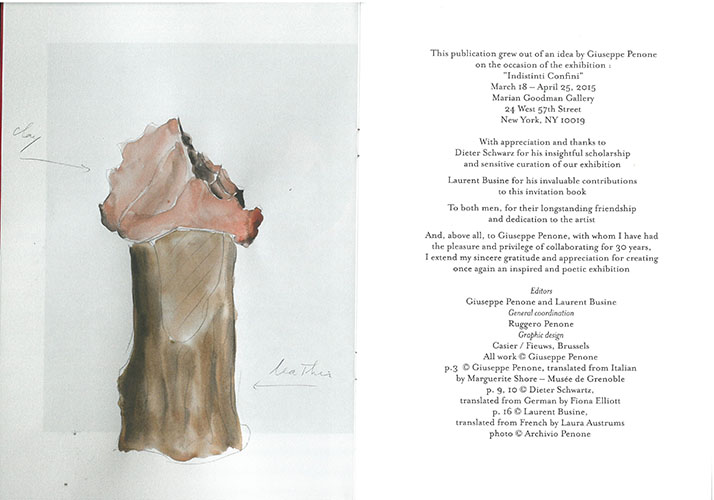 clay
leather
This publication grew out of an idea by Giuseppe Penone
on the occasion of the exhibition :
"Indistinti Confini"
March 18 – April 25, 2015
Marian Goodman Gallery
24 West 57th Street
New York, NY 10019
With appreciation and thanks to
Dieter Schwarz for his insightful scholarship
and sensitive curation of our exhibition
Laurent Busine for his invaluable contributions
to this invitation book
To both men, for their longstanding friendship
and dedication to the artist
And, above all, to Giuseppe Penone, with whom I have had
the pleasure and privilege of collaborating for 30 years,
I extend my sincere gratitude and appreciation for creating
once again an inspired and poetic exhibition
Editors
Giuseppe Penone and Laurent Busine
General coordination
Ruggero Penone
Graphic design
Casier / Fieuws, Brussels
All work © Giuseppe Penone
p.3 © Giuseppe Penone, translated from Italian
by Marguerite Shore – Musée de Grenoble
p. 9, 10 © Dieter Schwartz,
translated from German by Fiona Elliott
p. 16 © Laurent Busine,
translated from French by Laura Austrums
photo © Archivio Penone